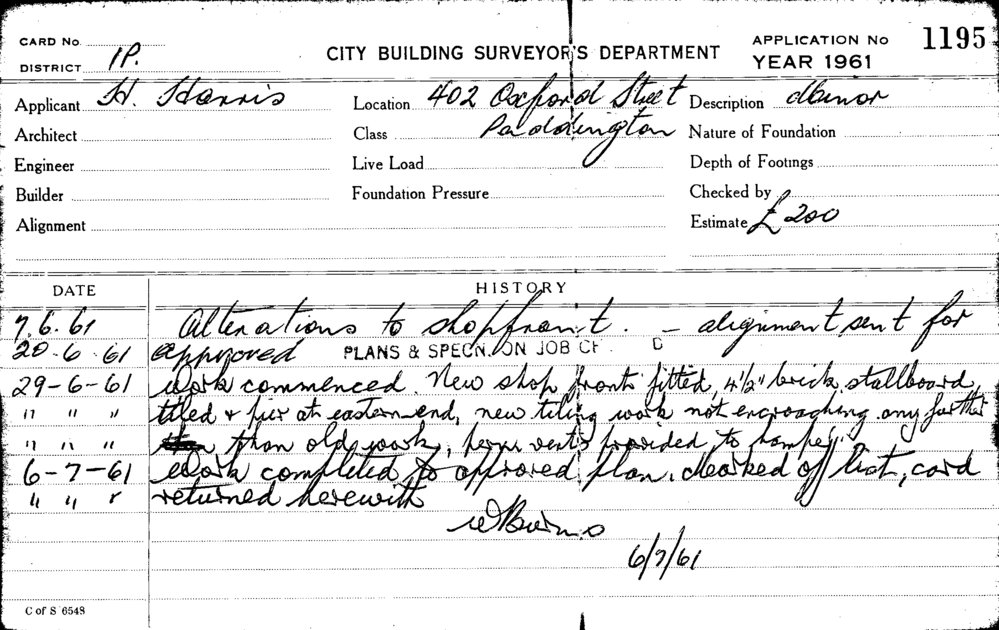 CARD No.
DISTRICT 1P.
CITY BUILDING SURVEYOR'S DEPARTMENT
APPLICATION No 1195
YEAR 1961
Applicant H. Harris
Location 402 Oxford Street
Description Minor
Architect
Class Paddington
Nature of Foundation
Engineer
Live Load
Depth of Footings
Builder
Foundation Pressure
Checked by
Alignment
Estimate £200
DATE HISTORY
7.6.61 Alterations to shopfront. - alignment sent for
20-6-61 approved PLANS & SPECN. ON JOB
29-6-61 Work commenced. New shop front fitted, 4½" brick stallboard,
" " " tiled & pier at eastern end, new tiling work not encroaching any further
" " " than old work, vents provided to
6-7-61 Work completed to approved plan. Marked off list, card
" " " returned herewith
WBurns
6/7/61
C of S 6548